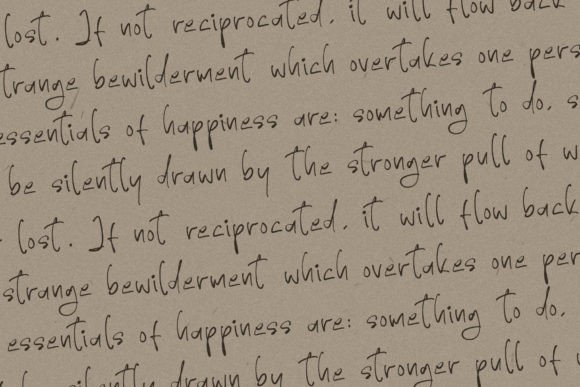 lost. If not reciprocated, it will flow back
trange bewilderment which overtakes one pers
essentials of happiness are: something to do, s
be silently drawn by the stronger pull of w
lost. If not reciprocated, it will flow back
strange bewilderment which overtakes one per
essentials of happiness are: something to do,
silently drawn by the stronger pull of